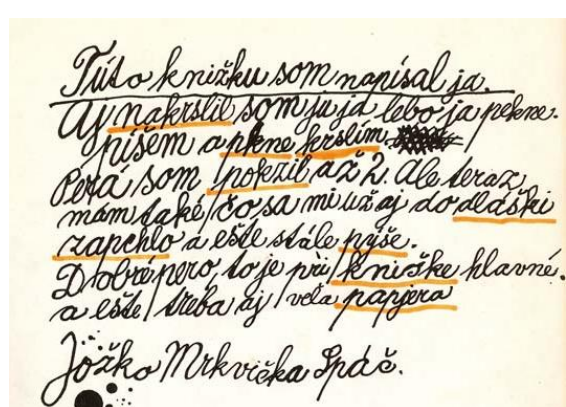 Túto knižku som napísal ja.
Aj nakrslil som ju já lebo ja pekne.
píšem a pkne krslím
Perá som pokzil až 2. Ale teraz
mám také, čo sa mi už aj do dlaški
zapchlo a ešte stále pyše.
Dobré pero, to je pri kniške hlavné.
a ešte treba aj vela papjera
Jožko Mrkvička Spáč.